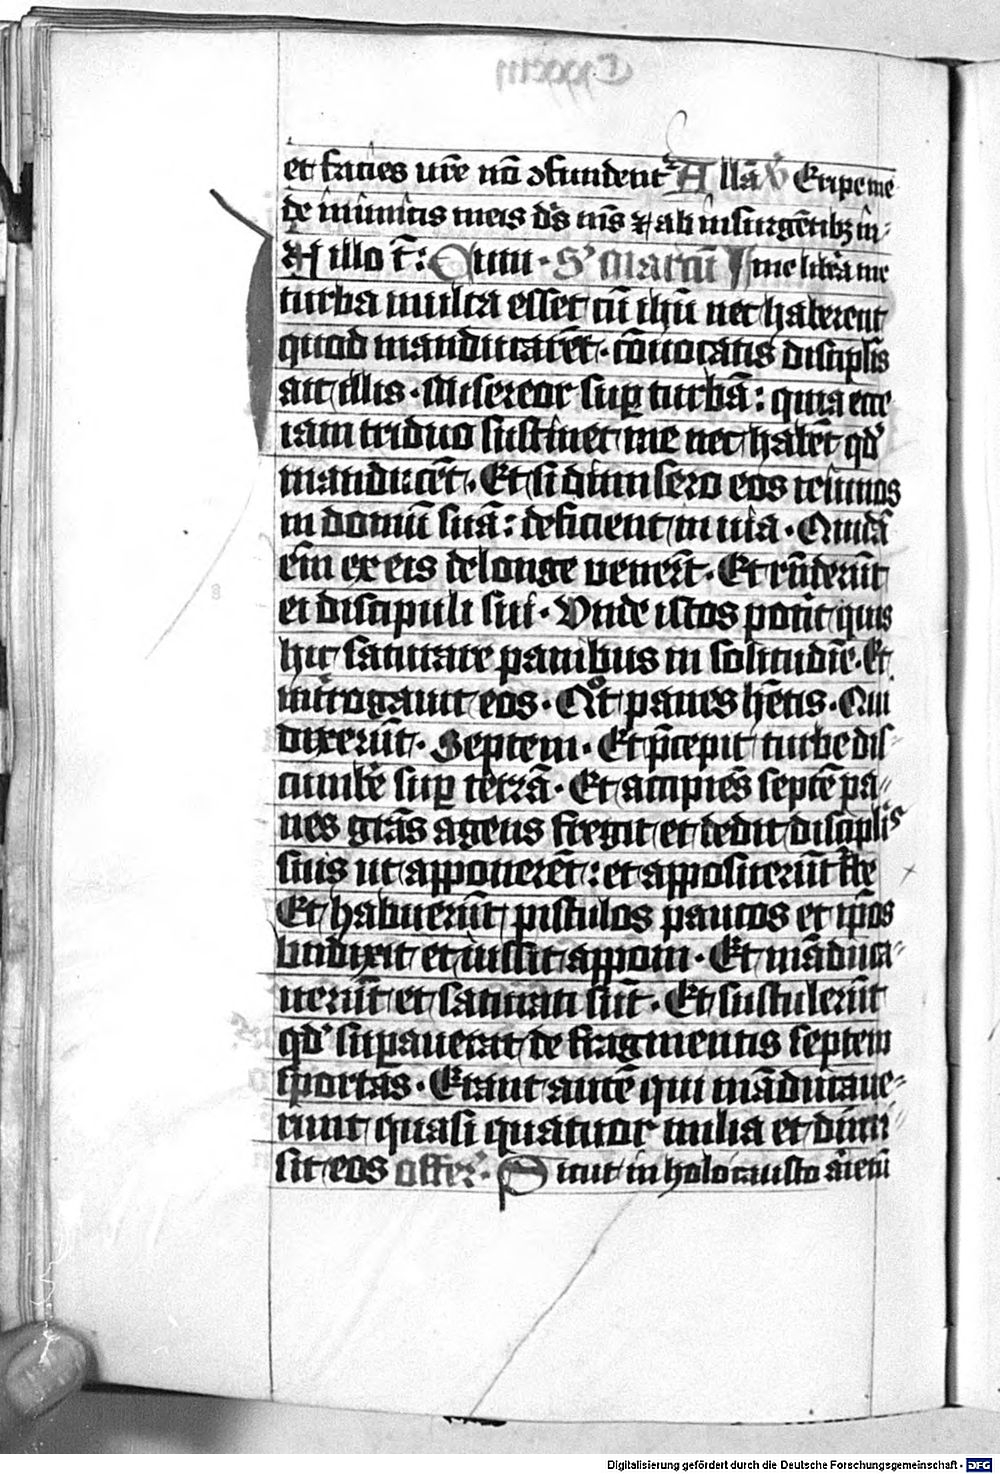 et facies vr̄e nō ↄfundentᷣ Alla᷑ V̷ Eripe me
de inimicis meis ds̄ ms̄ ⁊ ab insurgētibꝫ in
In illo t̄: Quum · S' Marcū me libͣa me
turba multa esset cū ihū nec haberent
quod manducarēt · cōuocatis discipl̄is
ait illis · Misereor suꝑ turbā : quia ecce
iam triduo sustinet me nec habēt qd'
manducēt · Et si dimisero eos ieiunos
in domū suā : deficient in uia · Quidā
em̄ ex eis de longe venerūt · Et rn̄derūt
ei discipuli sui · Vnde istos potit quis
hic saturare panibus in solitudīe · Et
int̄rogauit eos · Qͦt panes hētis · Qui
dixerūt · Septem · Et p̄cepit turbe dis-
cumbe᷑ suꝑ terrā · Et accipiēs septē pa-
nes gr̄as agens fregit et dedit discipl̄is
suis ut apponerēt : et apposuerūt tbe
Et habuerūt pisciculos paucos et ip̄os
bn̄dixit et iussit apponi · Et māduca-
uerūt et saturati sūt · Et sustulerūt
qd' suꝑauerat de fragmentis septem
sportas · Erant autē qui māducaue-
runt quasi quatuor milia et dimi-
sit eos offer̄ · Sicut in holocausto arietū
Digitalisierung gefördert durch die Deutsche Forschungsgemeinschaft - DFG